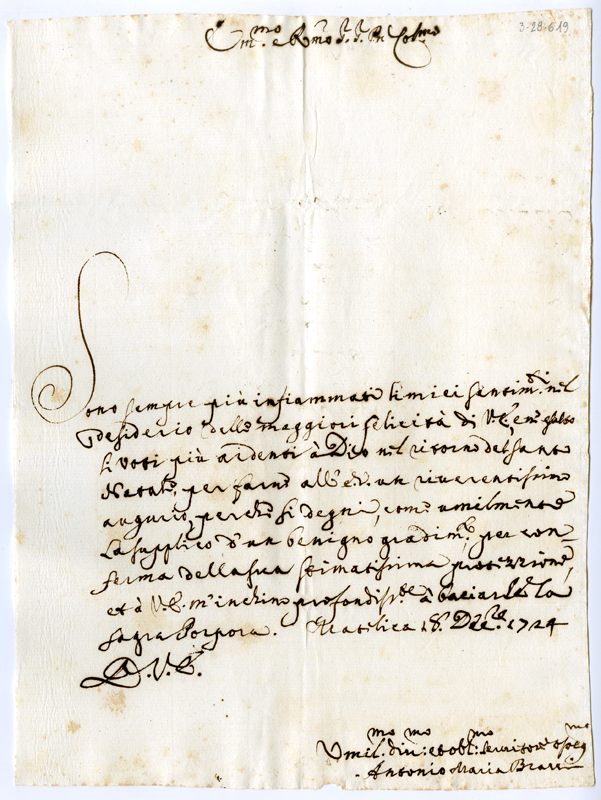 3-28-619
Em.mo e R.mo S. S. Pn Col.mo
Sono sempre più infiammati li miei sentim.ti nel
desiderio delle maggiori felicità di V.E., e ne esalto
li voti più ardenti à Dio nel ritorno del Santo
Natale, per farne all' E.V. un riverentissimo
augurio, perche si degni, come umilmente
La supplico d'un benigno gradim.to per con-
ferma della sua stimatissima protezzione,
et à V.E. m'inchino profondiss.te à baciarLe la
Sagra Porpora. Matelica 18. Dec.re 1724
D.V.E.
Umil.mo div.mo et obl.mo servitore osseq.mo
Antonio Maria